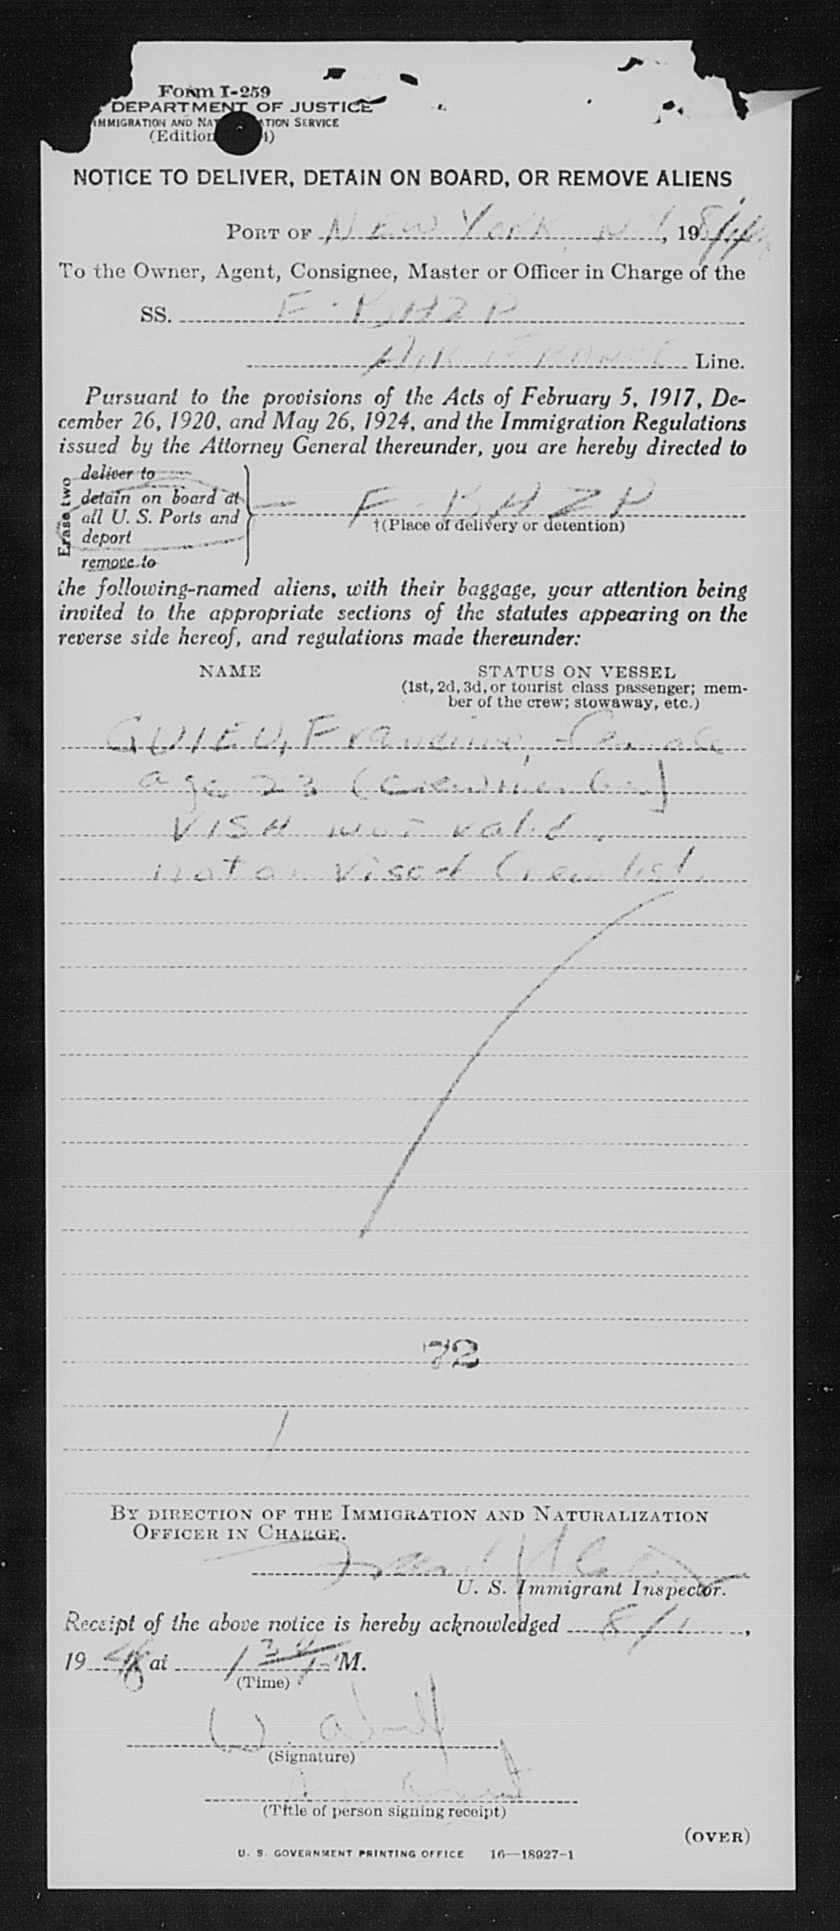 Form I-259
DEPARTMENT OF JUSTICE
IMMIGRATION AND NATION SERVICE
(Edition
NOTICE TO DELIVER, DETAIN ON BOARD, OR REMOVE ALIENS
PORT OF New York, N.Y., 19
To the Owner, Agent, Consignee, Master or Officer in Charge of the
SS. F-BHZP
AIR FRANCE Line.
Pursuant to the provisions of the Acts of February 5, 1917, De-
cember 26, 1920, and May 26, 1924, and the Immigration Regulations
issued by the Attorney General thereunder, you are hereby directed to
Erase two
deliver to
detain on board at
all U. S. Ports and
deport
remove to
F-BHZP
†(Place of delivery or detention)
the following-named aliens, with their baggage, your attention being
invited to the appropriate sections of the statutes appearing on the
reverse side hereof, and regulations made thereunder:
NAME STATUS ON VESSEL
(1st, 2d, 3d, or tourist class passenger; mem-
ber of the crew; stowaway, etc.)
QUIEU, Francine, female
age 23 (Crewmember)
VISA not valid,
not on Visaed Crew list.
72
BY DIRECTION OF THE IMMIGRATION AND NATURALIZATION
OFFICER IN CHARGE.
U. S. Immigrant Inspector.
Receipt of the above notice is hereby acknowledged 8/1,
19 at M.
(Time)
W.
(Signature)
(Title of person signing receipt)
(OVER)
U. S. GOVERNMENT PRINTING OFFICE 16—18927-1